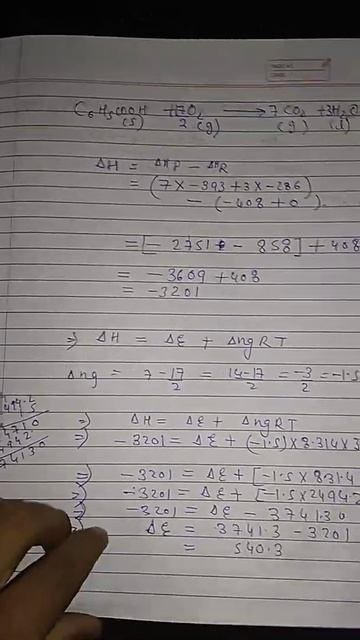 C6H5COOH + 17/2 O2 → 7CO2 + 3H2O
(s) (g) (g) (l)
ΔH = ΔHP - ΔHR
= (7 x -393 + 3 x -286)
- (-408 + 0).
= [- 2751 - 858] + 408
= -3609 + 408
= -3201
⇒ ΔH = Δε + ΔngRT
Δng = 7 - 17/2 = 14-17/2 = -3/2 = -1.5
⇒ ΔH = Δε + ΔngRT
⇒ -3201 = Δε + (-1.5) x 8.314 x 3
⇒ -3201 = Δε + [-1.5 x 831.4
⇒ -3201 = Δε + [-1.5 x 2494.2
⇒ -3201 = Δε - 3741.30
Δε = 3741.3 - 3201
= 540.3